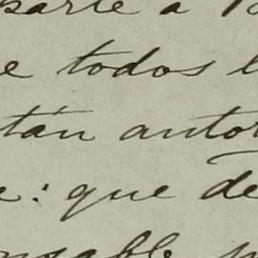 parte a
e todos l
tán autor
e: que de
nsable